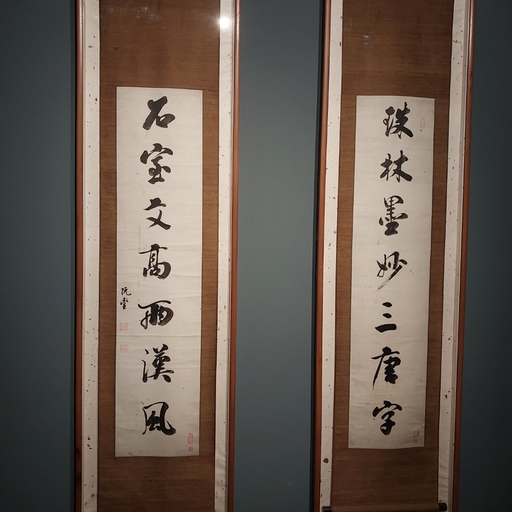 珠林墨妙三唐字
石室文高兩漢風
阮堂